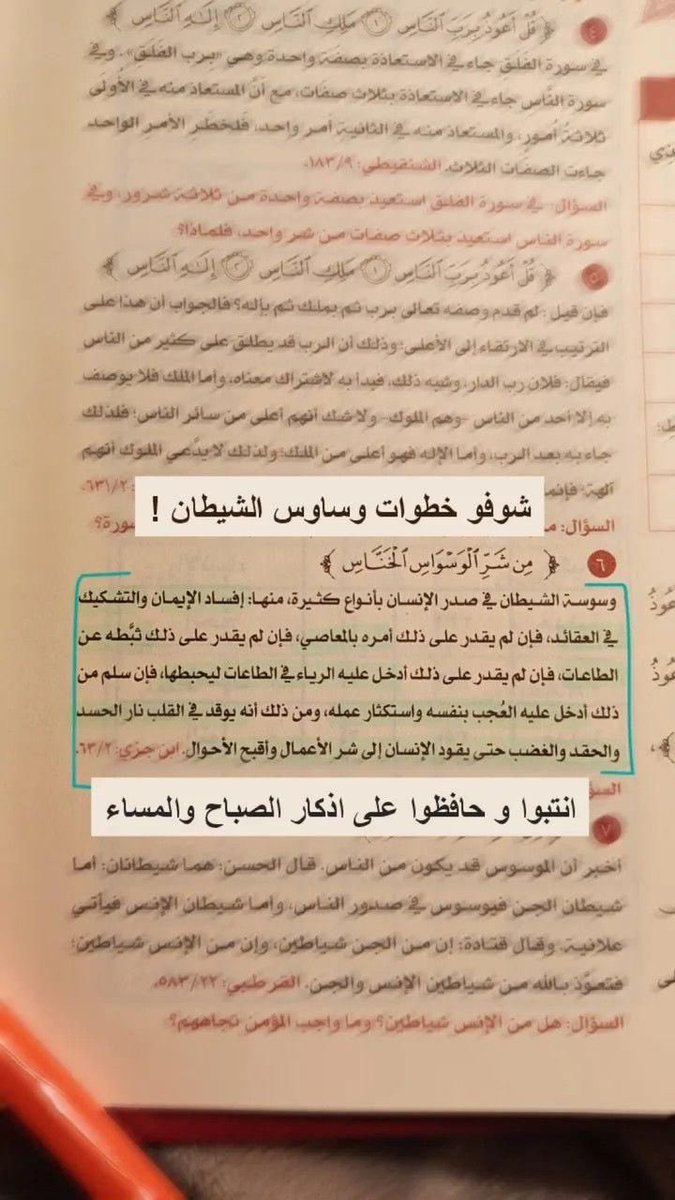 ٤ ﴿ قُلْ أَعُوذُ بِرَبِّ ٱلنَّاسِ ۝١ مَلِكِ ٱلنَّاسِ ۝٢ إِلَٰهِ ٱلنَّاسِ ﴾
في سورة الفلق جاء في الاستعاذة بصفة واحدة وهي «برب الفلق». وفي
سورة النَّاس جاء في الاستعاذة بثلاث صفات، مع أنَّ المستعاذ منه في الأولى
ثلاثةُ أمورٍ، والمستعاذ منه في الثانية أمر واحد، فلخطرِ الأمرِ الواحد
جاءت الصفات الثلاث. الشنقيطي: ١٨٣/٩.
السؤال: في سورة الفلق استعيذ بصفة واحدة من ثلاثة شرور، وفي
سورة الناس استعيذ بثلاث صفات من شر واحد، فلماذا؟
٥ ﴿ قُلْ أَعُوذُ بِرَبِّ ٱلنَّاسِ ۝١ مَلِكِ ٱلنَّاسِ ۝٢ إِلَٰهِ ٱلنَّاسِ ﴾
فإن قيل: لم قدم وصفه تعالى برب ثم بملك ثم بإله؟ فالجواب أن هذا على
الترتيب في الارتقاء إلى الأعلى؛ وذلك أن الرب قد يطلق على كثير من الناس
فيقال: فلان رب الدار، وشبه ذلك، فبدأ به لاشتراك معناه، وأما الملك فلا يوصف
به إلا أحد من الناس -وهم الملوك- ولا شك أنهم أعلى من سائر الناس؛ فلذلك
جاء به بعد الرب، وأما الإله فهو أعلى من الملك؛ ولذلك لا يدَّعي الملوك أنهم
آلهة؛ فإنما ٦٣١/٢.
شوفو خطوات وساوس الشيطان !
السؤال: سورة؟
٦ ﴿ مِن شَرِّ ٱلْوَسْوَاسِ ٱلْخَنَّاسِ ﴾
وسوسة الشيطان في صدر الإنسان بأنواع كثيرة، منها: إفساد الإيمان والتشكيك
في العقائد، فإن لم يقدر على ذلك أمره بالمعاصي، فإن لم يقدر على ذلك ثبَّطه عن
الطاعات، فإن لم يقدر على ذلك أدخل عليه الرياء في الطاعات ليحبطها، فإن سلم من
ذلك أدخل عليه العُجب بنفسه واستكثار عمله، ومن ذلك أنه يوقد في القلب نار الحسد
والحقد والغضب حتى يقود الإنسان إلى شر الأعمال وأقبح الأحوال. ابن جزي: ٦٣/٢.
انتبوا و حافظوا على اذكار الصباح والمساء
٧
أخبر أن الموسوس قد يكون من الناس. قال الحسن: هما شيطانان: أما
شيطان الجن فيوسوس في صدور الناس، وأما شيطان الإنس فيأتي
علانية. وقال قتادة: إن من الجن شياطين، وإن من الإنس شياطين؛
فتعوَّذ بالله من شياطين الإنس والجن. القرطبي: ٥٨٣/٢٢.
السؤال: هل من الإنس شياطين؟ وما واجب المؤمن تجاههم؟